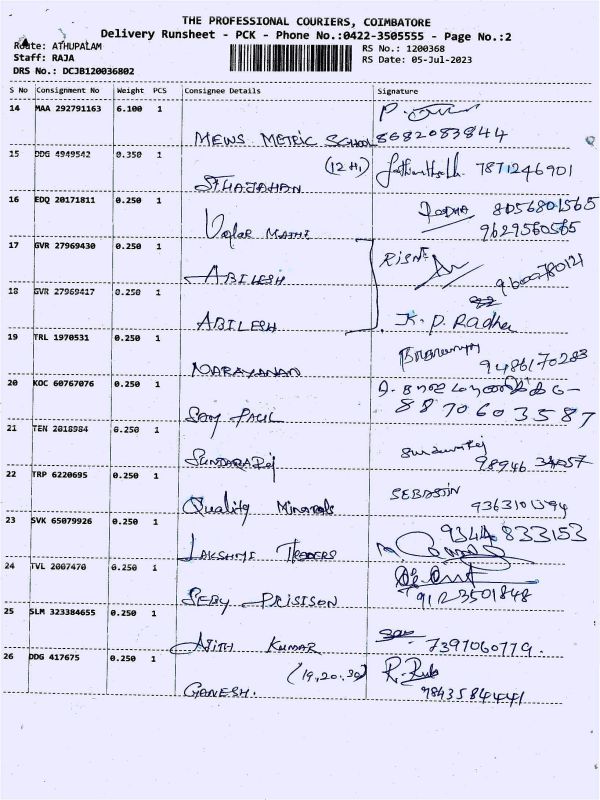 THE PROFESSIONAL COURIERS, COIMBATORE
Delivery Runsheet - PCK - Phone No.:0422-3505555 - Page No.:2
Route: ATHUPALAM RS No.: 1200368
Staff: RAJA RS Date: 05-Jul-2023
DRS No.: DCJB120036802
S No Consignment No Weight PCS Consignee Details Signature
14 MAA 292791163 6.100 1
MEWS METRIC SCHOOL 8682083844
15 DDG 4949542 0.350 1 (12 H1) 7871246901
STHAJAHAN
16 EDQ 20171811 0.250 1 RADHA 8056801565
MATHI 9629560565
17 GVR 27969430 0.250 1
ABILESH
18 GVR 27969417 0.250 1
ABILESH K. P. Radha
19 TRL 1970531 0.250 1
NARAYANAN 9486170283
20 KOC 60767076 0.250 1
SAM PAUL 8870603587
21 TEN 2018984 0.250 1
SUNDARARAJ 98946
22 TRP 6220695 0.250 1 SEBASTIN
Quality Minarals
23 SVK 65079926 0.250 1 9344 833153
LAKSHMI TRADERS
24 TVL 2007470 0.250 1
SEBY PRISTSON 9123501848
25 SLM 323384655 0.250 1
AJITH KUMAR 7397060779.
26 DDG 417675 0.250 1 (19,20,30)
GANESH. 9843584441